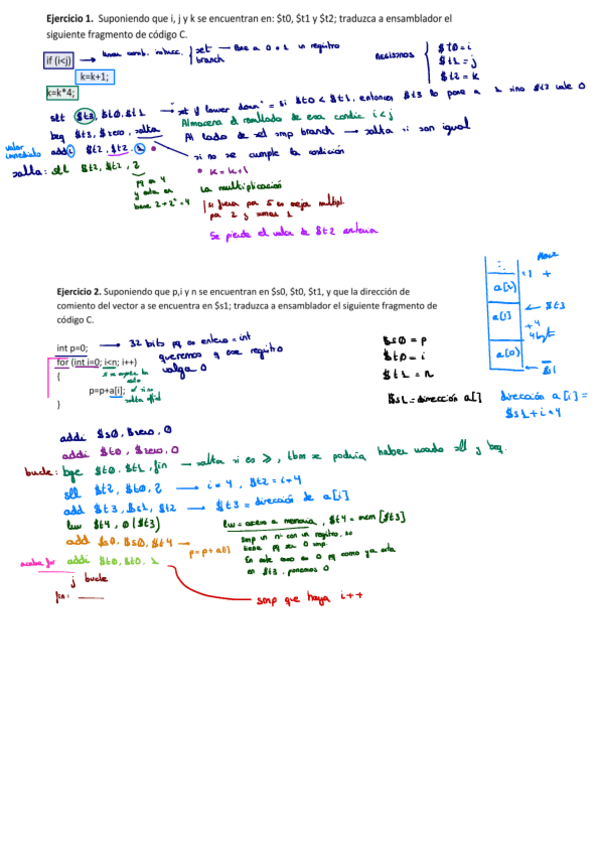 Ejercicio 1. Suponiendo que i, j y k se encuentran en: $t0, $t1 y $t2; traduzca a ensamblador el
siguiente fragmento de código C.
if (i<j)
set → Pone a 0 o 1 un registro
branch
k=k+1;
k=k*4;
$t0=i
$t1=j
$t2=k
slt $t3, $t0, $t1 → "set if lower down" = si $t0 < $t1, entonces $t3 lo pone a 1 sino $t3 vale 0
Almacena el resultado de esa condic i<j
beq $t3, $zero, salta
Al lado de sel smp branch → salta si son igual
valor
inmediato
addi $t2, $t2, 1
si no se cumple la condición
k = k+1
salta: sll $t2, $t2, 2
pq es 4
y esta en
base 2 → 2² = 4
La multiplicación
si fuera por 5 es mejor multipl.
por 2 y sumas 1
Se pierde el valor de $t2 anterior
Ejercicio 2. Suponiendo que p,i y n se encuentran en $s0, $t0, $t1, y que la dirección de
comiento del vector a se encuentra en $s1; traduzca a ensamblador el siguiente fragmento de
código C.
a[2]
a[1]
a[0]
← $t3
+4
$s1
int p=0;
→ 32 bits pq es entero = int
queremos q ese registro
valga 0
for (int i=0; i<n; i++)
{
p=p+a[i];
}
$s0 = p
$t0 = i
$t1 = n
$s1 = dirección a[]
dirección a[i] =
$s1 + i*4
addi $s0, $zero, 0
addi $t0, $zero, 0
bucle: bge $t0, $t1, fin → salta si es ≥, tbm se podria haber usado sll y beq.
sll $t2, $t0, 2 → i*4, $t2 = i*4
add $t3, $s1, $t2 → $t3 = dirección de a[i]
lw $t4, 0($t3)
lw = acceso a memoria, $t4 = mem[$t3]
smp un nº con un registro, se
tiene pq ser 0 smp.
En este caso es 0 pq como ya esta
en $t3, ponemos 0
add $s0, $s0, $t4 →
p = p + a[i]
acaba for addi $t0, $t0, 1
j bucle
fin:
smp que haya i++